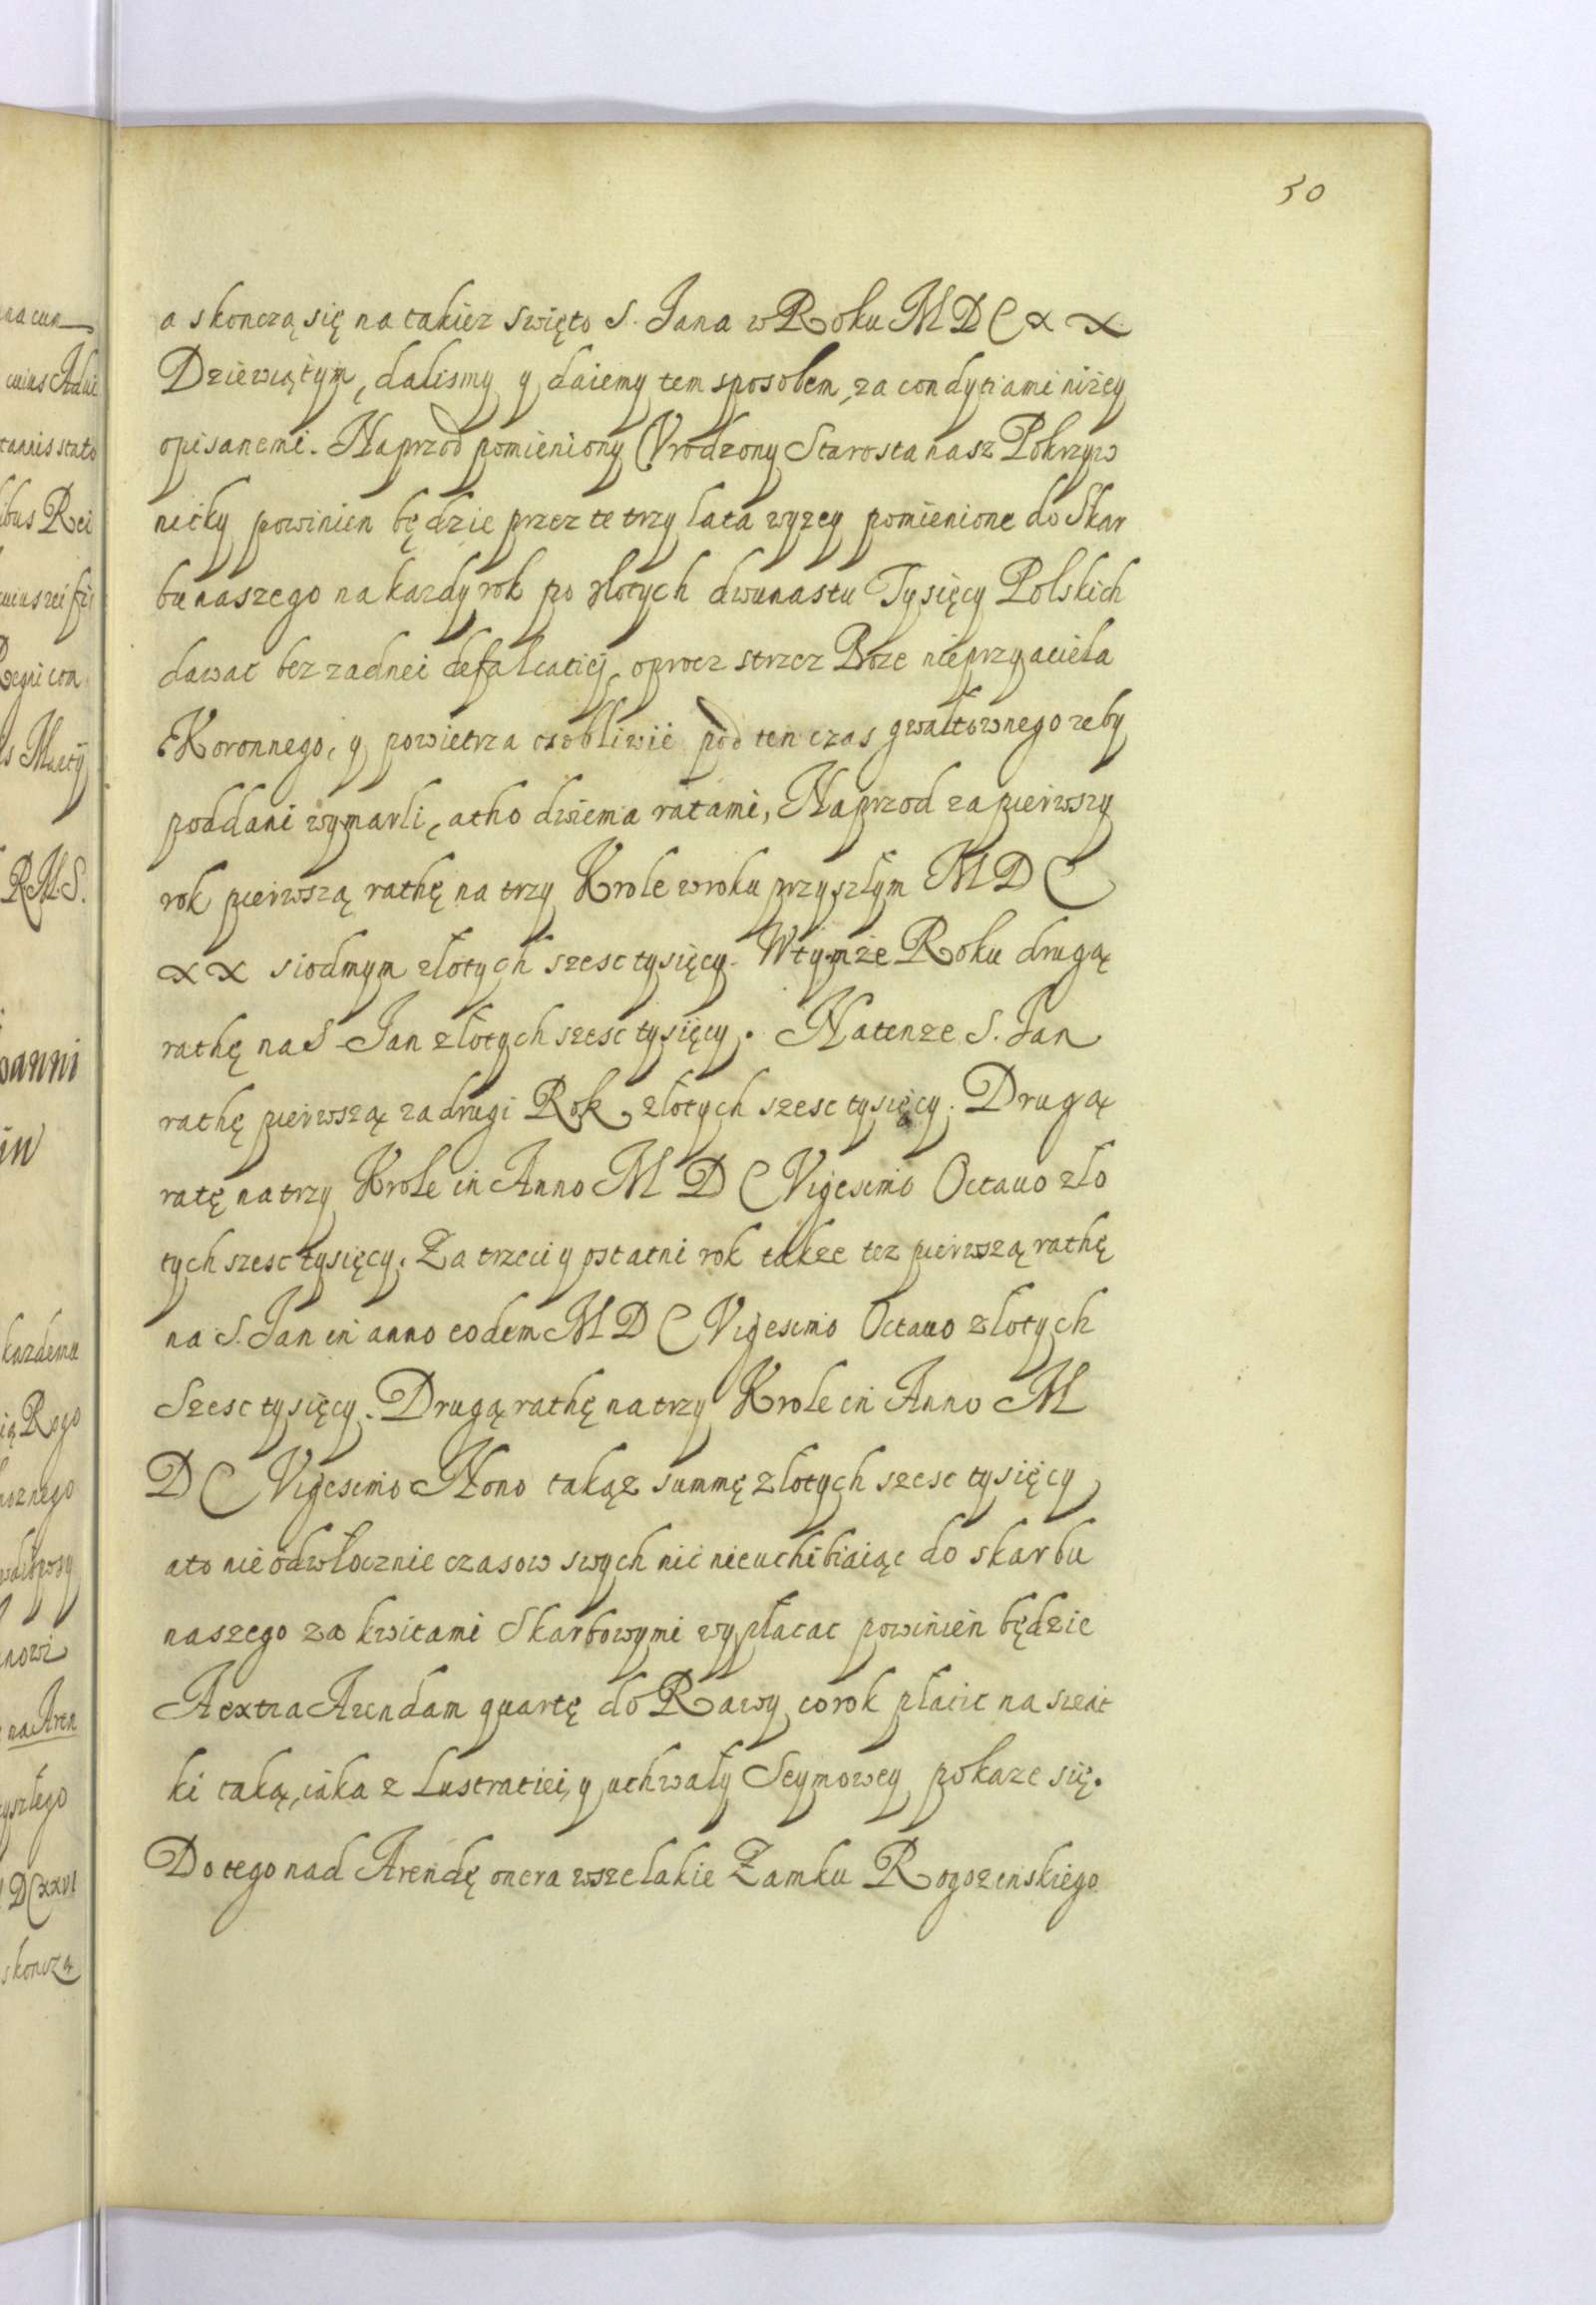 50
a skonczą się na takiez swięto S. Jana w Roku M D C x x
Dziewiątym, dalismy y daiemy tem sposobem, za condytiami niżey
opisanemi. Naprzod pomieniony Vrodzony Starosta nasz Pokrzyw
nicky powinien będzie przez te trzy lata wyzey pomienione do Skar
bu naszego na kazdy rok po złotych dwunastu Tysięcy Polskich
dawac bez zadnei defalcatiej, oprocz strzez Boze nieprzyaciela
Koronnego, y powietrza osobliwie pod ten czas gwałtownego zeby
poddani wymarli, a tho dwiema ratami, Naprzod za pierwszy
rok pierwszą rathę na trzy Krole w roku przyszłym M D C
x x siodmym złotych szesc tysięcy. W tymże Roku drugą
rathę na S Jan złotych szesc tysięcy. Na tenze S. Jan
rathę pierwszą za drugi Rok złotych szesc tysięcy. Drugą
ratę na trzy Krole in Anno M D C Vigesimo Octauo zło
tych szesc tysięcy. Za trzeci y ostatni rok takze tez pierwszą rathę
na S. Jan in anno eodem M D C Vigesimo Octauo złotych
Szesc tysięcy. Drugą rathę na trzy Krole in Anno M
D C Vigesimo Nono takąz summę złotych szesc tysięcy
a to nie odwłocznie czasow swych nic nieuchibiaiąc do skarbu
naszego za kwitami Skarbowymi wypłacac powinien będzie
A extra Arendam quartę do Rawy co rok płacic na swiąt
ki taką, iaka z Lustratiei, y uchwały Seymowey pokaze się.
Do tego nad Arendę onera wszelakie Zamku Rogozenskiego
na cum
cuius
tannis stato
ibus Rei
Regni con
R.M.S.
oanni
in
kazdemu
ią Rogo
noznego
nowi
na Aren
yszłego
DCXXVI
skonczą